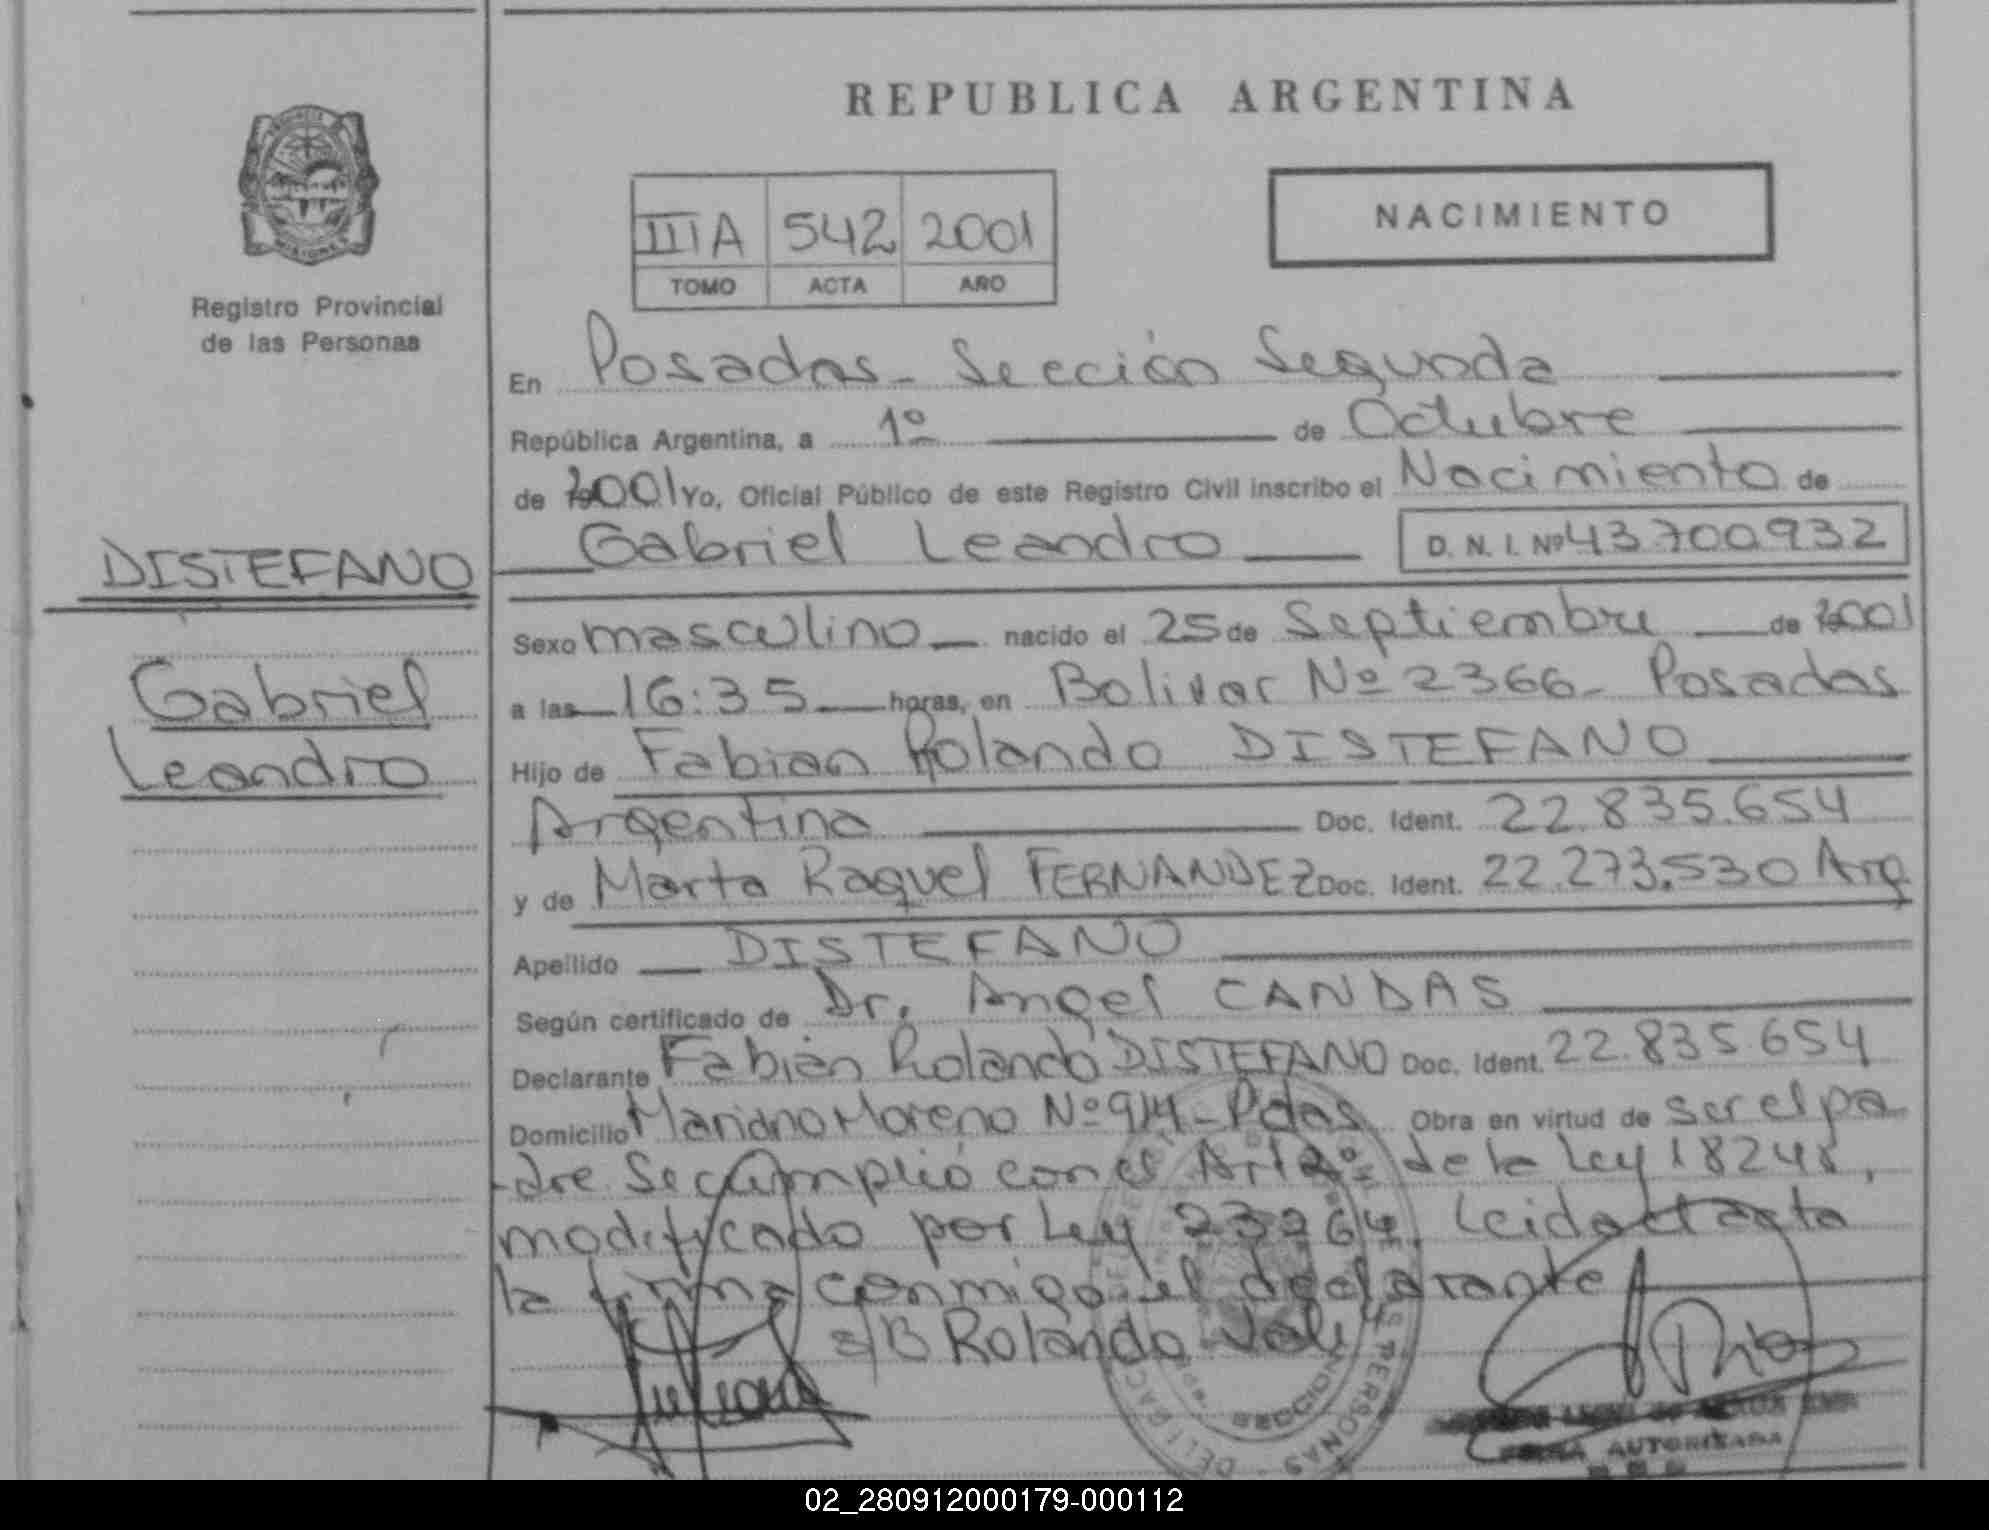 REPUBLICA ARGENTINA
PROVINCIA
MISIONES
Registro Provincial
de las Personas
IIIA 542 2001
TOMO ACTA AÑO
NACIMIENTO
En Posadas - Sección Segunda
República Argentina, a 1º de Octubre
de 2001 Yo, Oficial Público de este Registro Civil inscribo el Nacimiento de
Gabriel Leandro D. N. I. Nº 43700932
DISTEFANO
Gabriel
Leandro
Sexo masculino nacido el 25 de Septiembre de 2001
a las 16:35 horas, en Bolivar Nº 2366 - Posadas
Hijo de Fabian Rolando DISTEFANO
Argentina Doc. Ident. 22.835.654
y de Marta Raquel FERNANDEZ Doc. Ident. 22.273.530 Arg
Apellido DISTEFANO
Según certificado de Dr. Angel CANDAS
Declarante Fabián Rolando DISTEFANO Doc. Ident. 22.835.654
Domicilio Mariano Moreno Nº 914 - Pdas Obra en virtud de ser el pa
-dre. Se cumplió con el Art 2º de la Ley 18248,
modificado por Ley 23264. Leida el acta
la firma conmigo el declarante
s/B Rolando Vale
AUTORIZADA
02_280912000179-000112